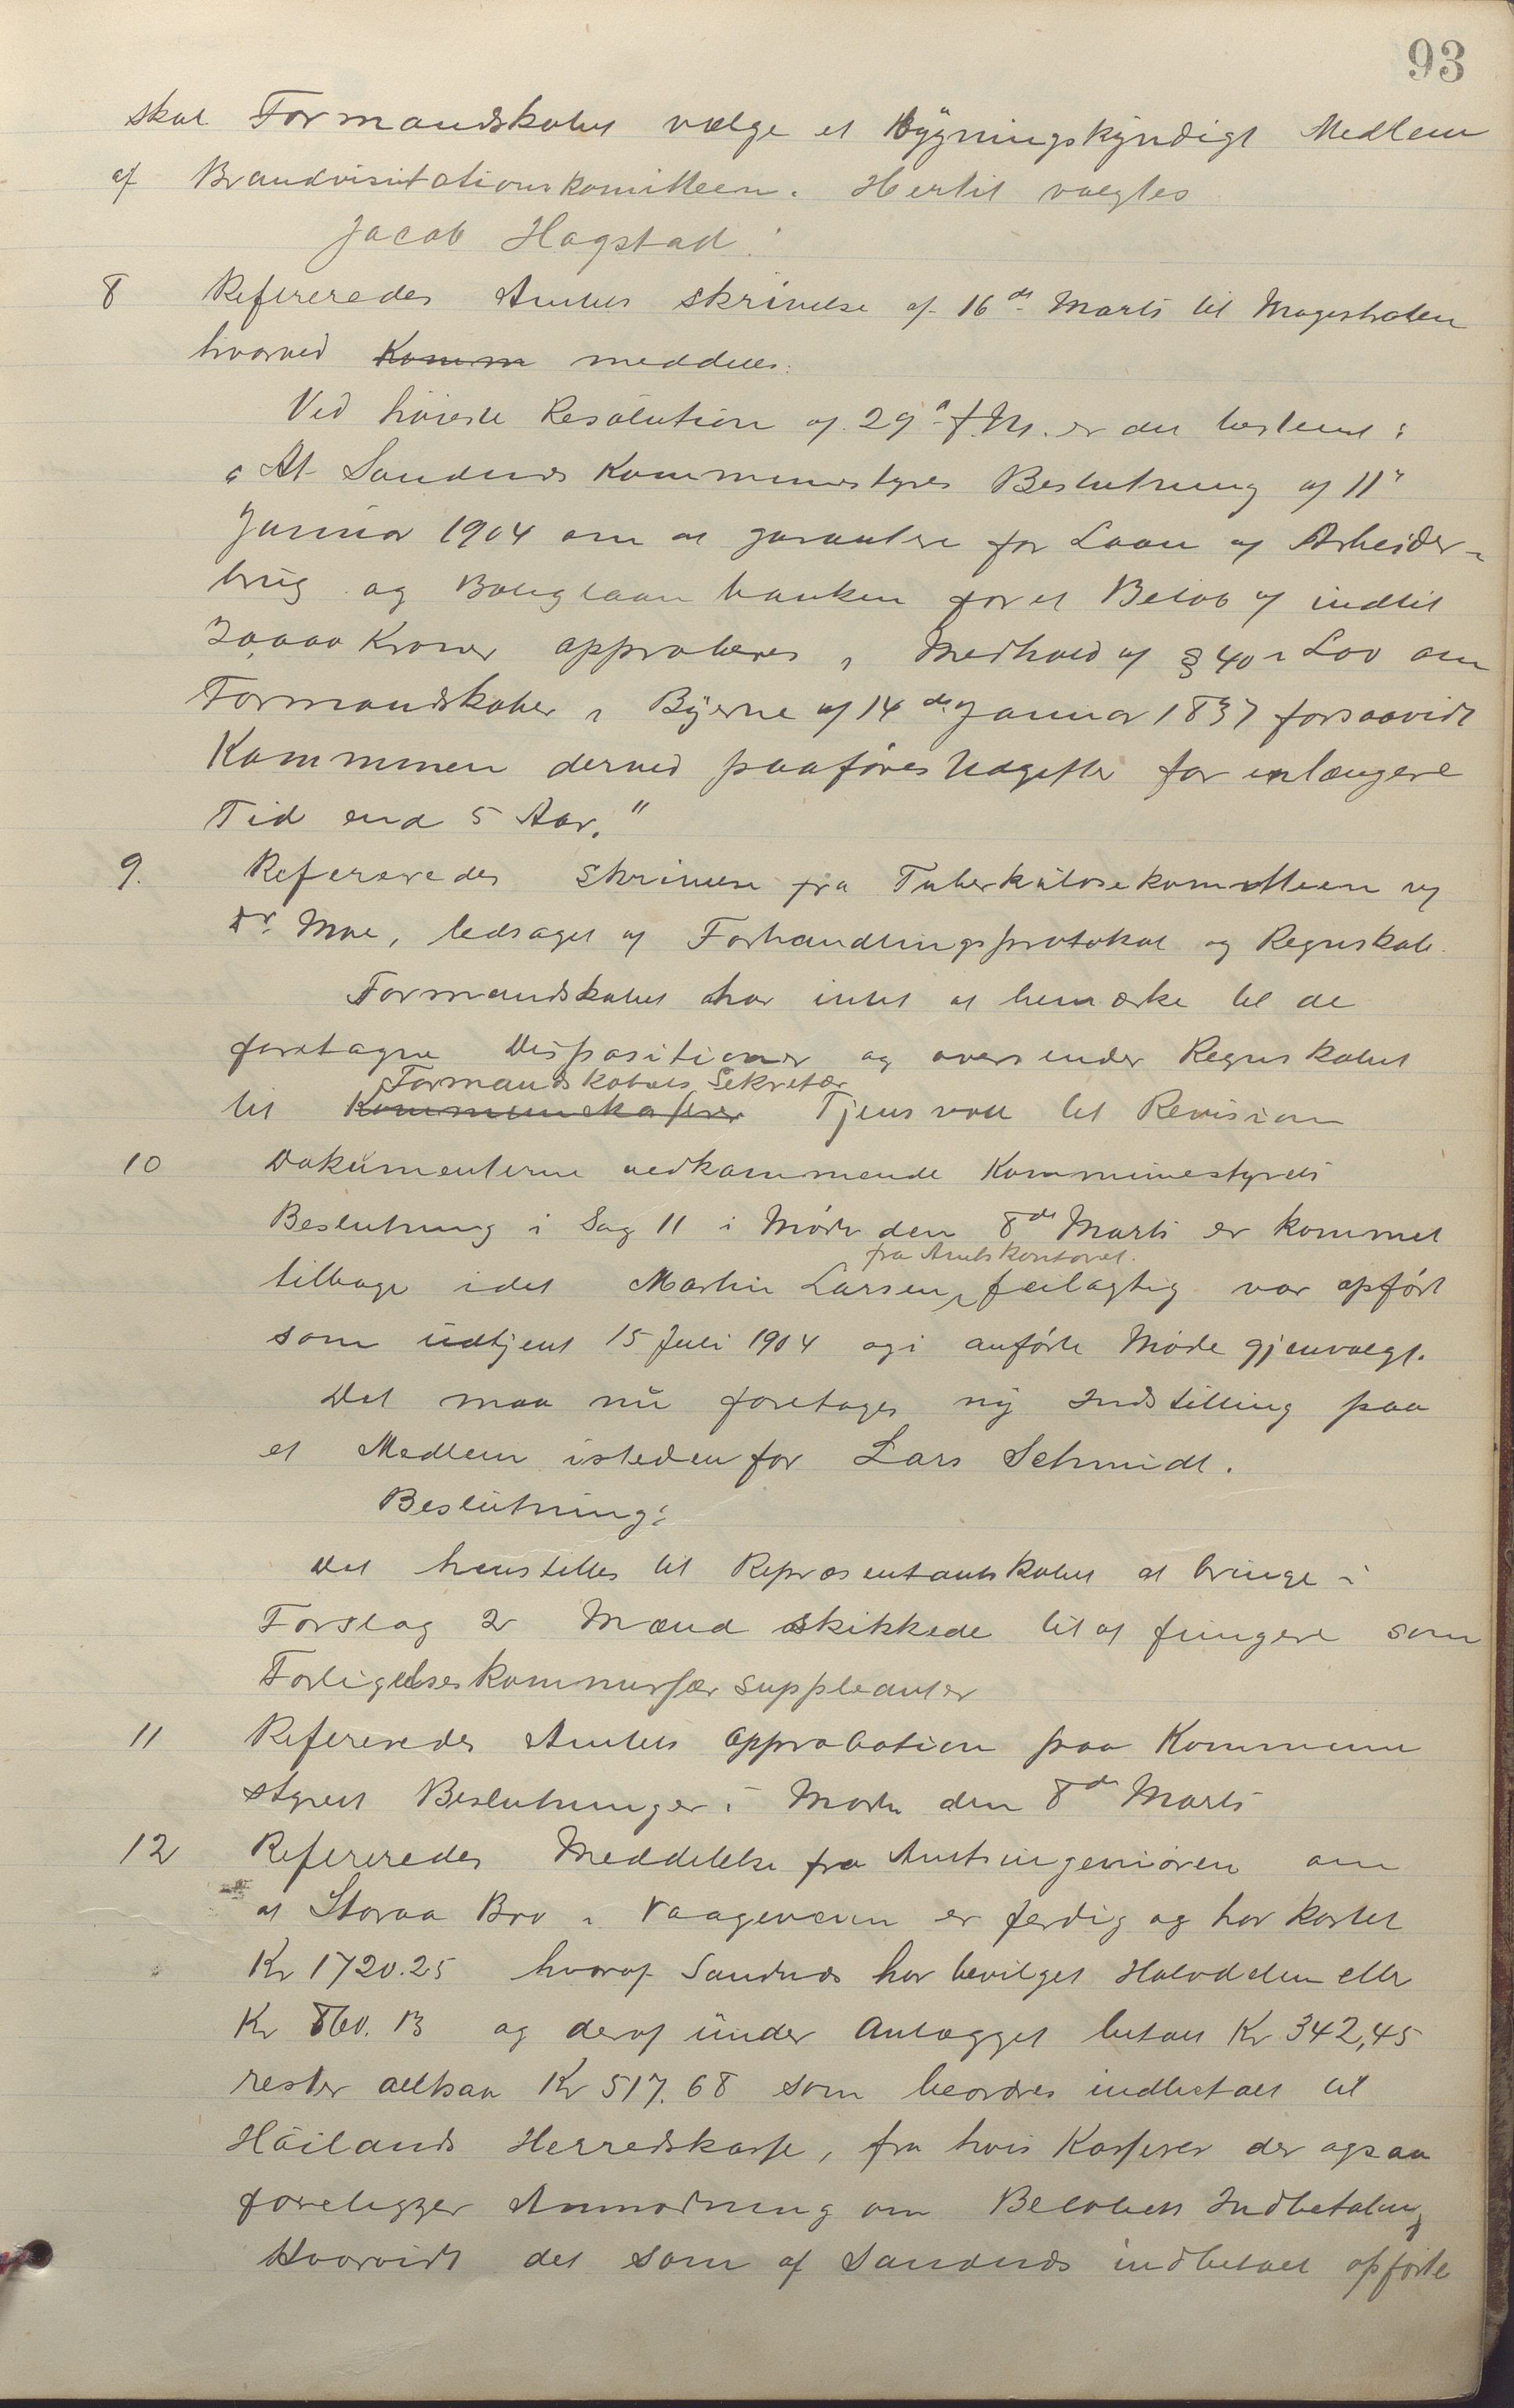 93
skal Formandskabet vælge et bygningskyndigt Medlem
af Brandvisitationskomitteen. Hertil valgtes
Jacob Hagstad.
8 Refereredes Amtets skrivelse af 16de Marts til Magistraten
hvorved Komm meddeles:
Ved høieste Resolution af 29de f.M. er det bestemt:
"At Sandnes Kommunestyres Beslutning af 11te
Januar 1904 om at garantere for Laan af Arbeider-
brug og Boliglaanbanken for et Beløb af indtil
20,000 Kroner approberes i Medhold af § 40 i Lov om
Formandskaber i Byerne af 14de Januar 1837 forsaavidt
Kommunen derved paaføres Udgifter for en længere
Tid end 5 Aar."
9. Refereredes Skrivelse fra Tuberkulosekomitteen og
Dr. Moe, ledsaget af Forhandlingsprotokol og Regnskab.
Formandskabet har intet at bemærke til de
foretagne Dispositioner og oversender Regnskabet
Formandskabets Sekretær
til Kommunekasserer Tjensvoll til Revision
10 Dokumenterne vedkommende Kommunestyrets
Beslutning i Sag 11 i Møde den 8de Marts er kommet
fra Amtskontoret.
tilbage idet Martin Larsen feilagtig var opført
som udtjent 15 Juli 1904 og i anførte Møde gjenvalgt.
Det maa nu foretages ny Indstilling paa
et Medlem istedenfor Lars Schmidt.
Beslutning:
Det henstilles til Repræsentantskabet at bringe i
Forslag 2 Mænd skikkede til at fungere som
Forligelseskommissær suppleanter
11 Refereredes Amtets Approbation paa Kommune
styrets Beslutninger i Møde den 8de Marts
12 Refereredes Meddelelse fra Amtsingeniøren om
at Storaa Bro i Vaageveien er ferdig og har kostet
Kr 1720.25 hvoraf Sandnes har bevilget Halvdelen eller
Kr 860.13 og deraf under Anlægget betalt Kr 342,45
rester altsaa Kr 517.68 som beordres indbetalt til
Høilands Herredskasse, fra hvis Kasserer der ogsaa
foreligger Anmodning om Beløbets Indbetaling
Hvorvidt det som af Sandnes indbetalt opførte